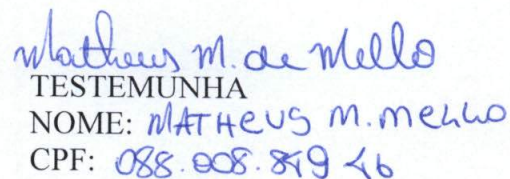 Matheus M. de Mello
TESTEMUNHA
NOME: MATHEUS M. MELLO
CPF: